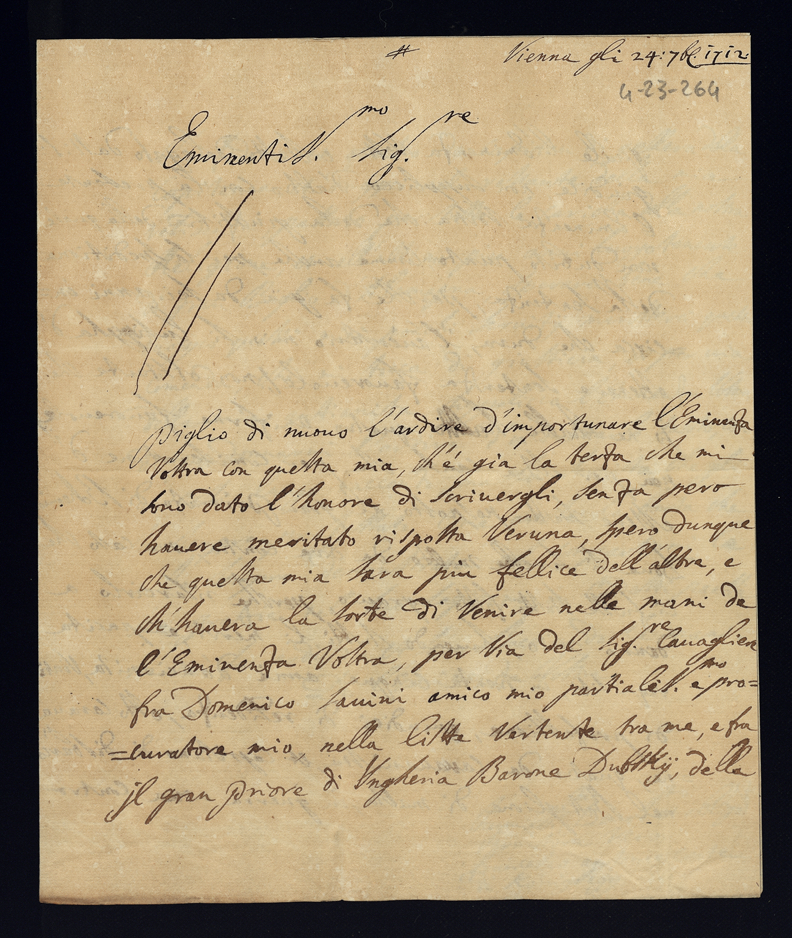 # Vienna gli 24: 7bC 1712
4-23-264
Eminentiss.mo Sig.re
Piglio di nuouo l'ardire d'importunare l'Eminenza
Vostra con questa mia, ch'é gia la terza che mi
sono dato l'honore di scriuergli, senza pero
hauere meritato risposta Veruna, spero dunque
che questa mia sara piu fellice dell'altre, e
ch'hauera la sorte di Venire nelle mani de
l'Eminenza Vostra, per Via del Sig.re Cauagliere
fra Domenico Sauini amico mio partialis.mo e pro=
=curatore mio, nella litte Vertente tra me, e fra
jl gran priore di Vngheria Barone Dubsky, della